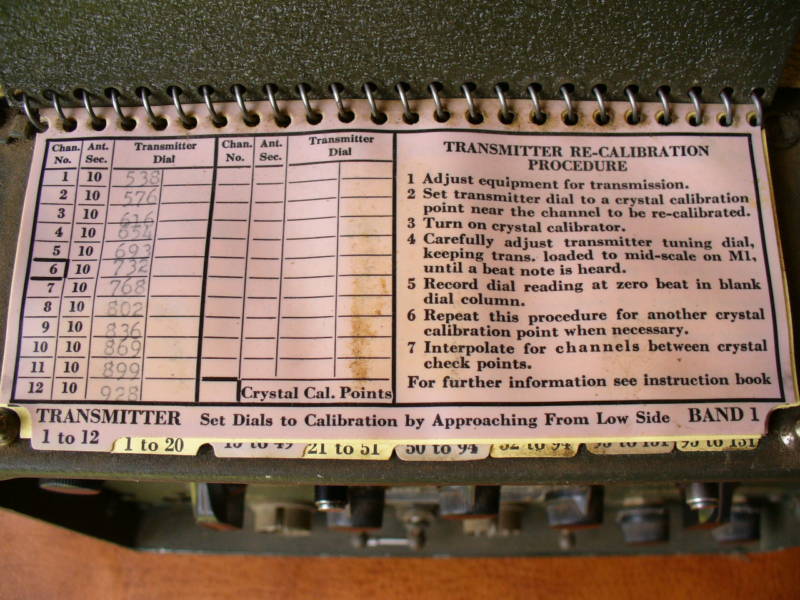 Chan. No. Ant. Sec. Transmitter Dial Chan. No. Ant. Sec. Transmitter Dial
1 10 538
2 10 576
3 10 616
4 10 654
5 10 693
6 10 732
7 10 768
8 10 802
9 10 836
10 10 869
11 10 899
12 10 928
Crystal Cal. Points
TRANSMITTER RE-CALIBRATION
PROCEDURE
1 Adjust equipment for transmission.
2 Set transmitter dial to a crystal calibration
point near the channel to be re-calibrated.
3 Turn on crystal calibrator.
4 Carefully adjust transmitter tuning dial,
keeping trans. loaded to mid-scale on M1,
until a beat note is heard.
5 Record dial reading at zero beat in blank
dial column.
6 Repeat this procedure for another crystal
calibration point when necessary.
7 Interpolate for channels between crystal
check points.
For further information see instruction book
TRANSMITTER Set Dials to Calibration by Approaching From Low Side BAND 1
1 to 12 1 to 20 13 to 49 21 to 51 50 to 94 52 to 94 95 to 131 95 to 131